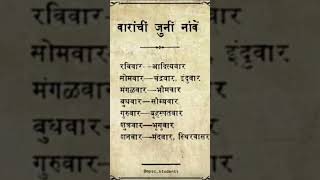 वारांचीं जुनीं नांवें
रविवार—आदित्यवार
सोमवार—चंद्रवार, इंदुवार
मंगळवार—भौमवार
बुधवार—सौम्यवार
गुरुवार—बृहस्पतवार
शुक्रवार—भृगुवार
शनवार—मंदवार, स्थिरवासर
@mpsc_students